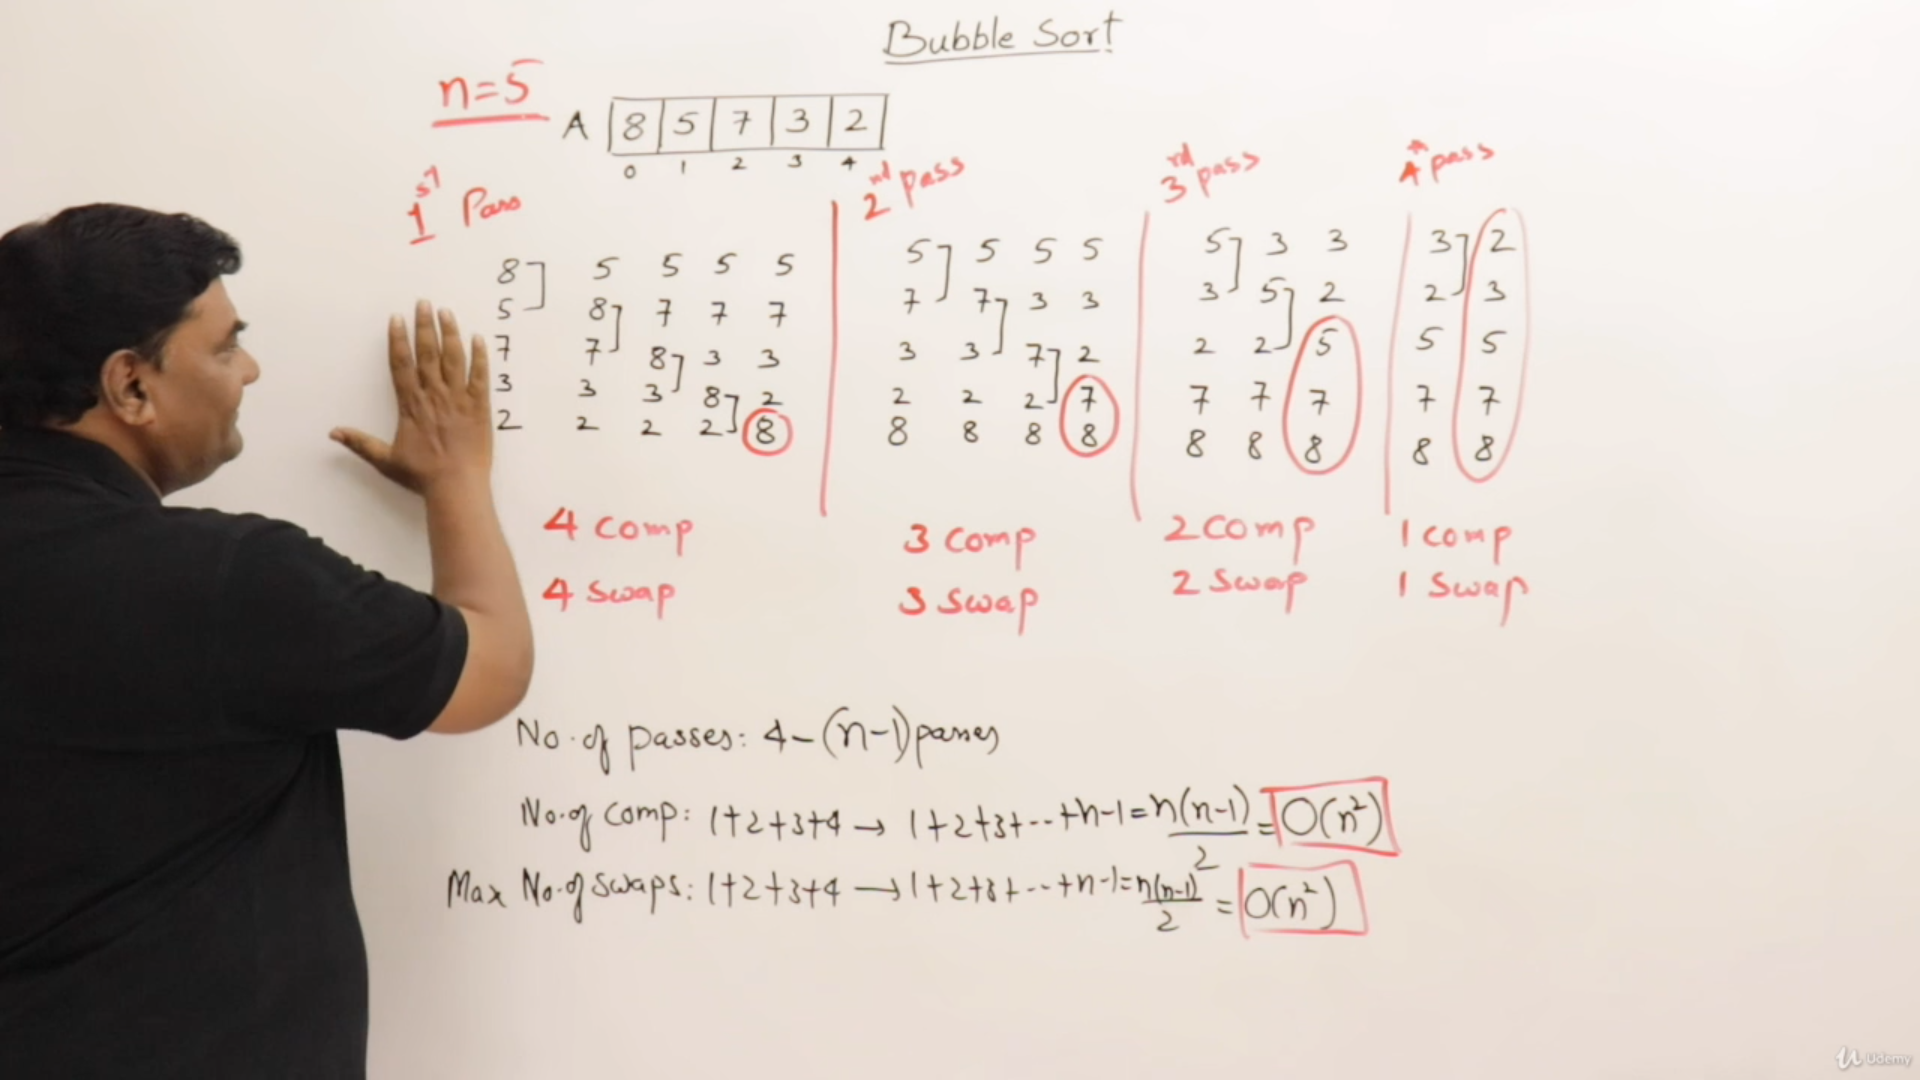 Bubble Sort
n=5
A 8 5 7 3 2
0 1 2 3 4
1st Pass
8 5 5 5 5
5 8 7 7 7
7 7 8 3 3
3 3 3 8 2
2 2 2 2 8
4 Comp
4 Swap
2nd pass
5 5 5 5
7 7 3 3
3 3 7 2
2 2 2 7
8 8 8 8
3 Comp
3 Swap
3rd pass
5 3 3
3 5 2
2 2 5
7 7 7
8 8 8
2 Comp
2 Swap
4th pass
3 2
2 3
5 5
7 7
8 8
1 Comp
1 Swap
No. of passes: 4 - (n-1) passes
No. of comp: 1+2+3+4 → 1+2+3+--+n-1 = n(n-1)/2 = O(n²)
Max No. of swaps: 1+2+3+4 → 1+2+3+--+n-1 = n(n-1)/2 = O(n²)
Udemy